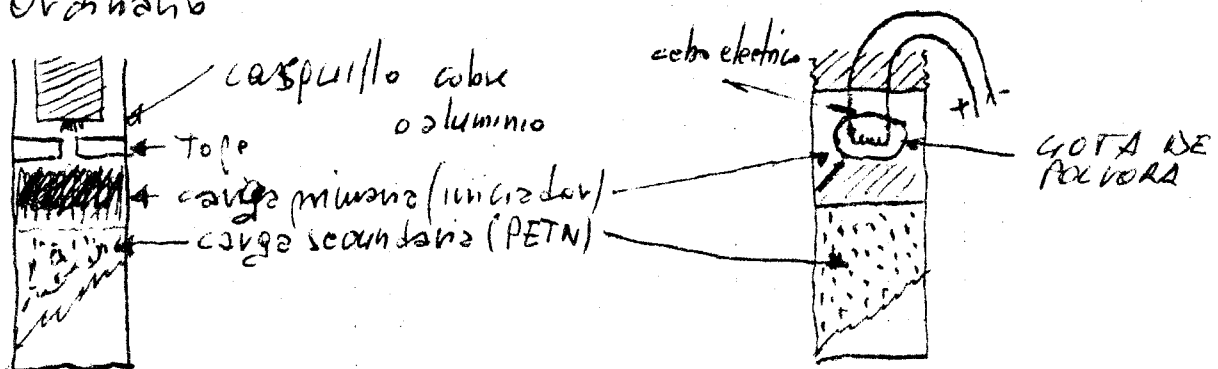 Ordinario
casquillo cobre
o aluminio
Tope
carga primaria (iniciador)
carga secundaria (PETN)
cebo electrico
+ -
GOTA DE
POLVORA